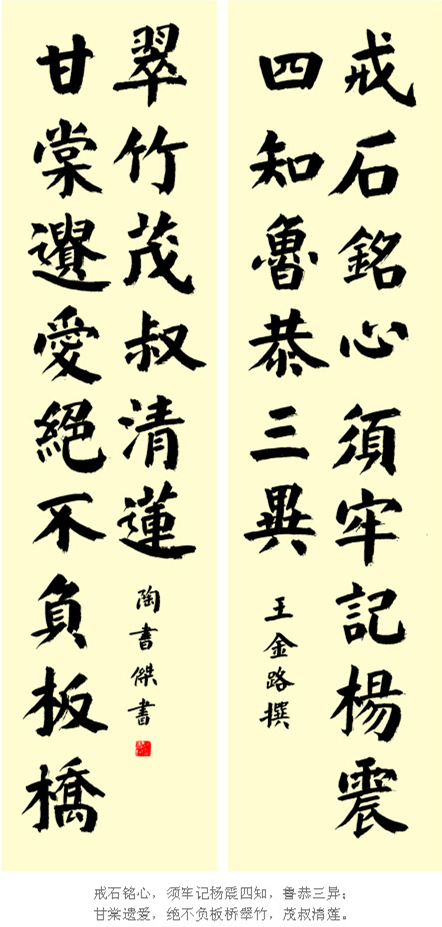 戒石銘心須牢記楊震
四知魯恭三異
王金路撰
甘棠遺愛絕不負板橋
翠竹茂叔清蓮
陶書傑書
戒石铭心，须牢记杨震四知，鲁恭三异；
甘棠遗爱，绝不负板桥翠竹，茂叔清莲。